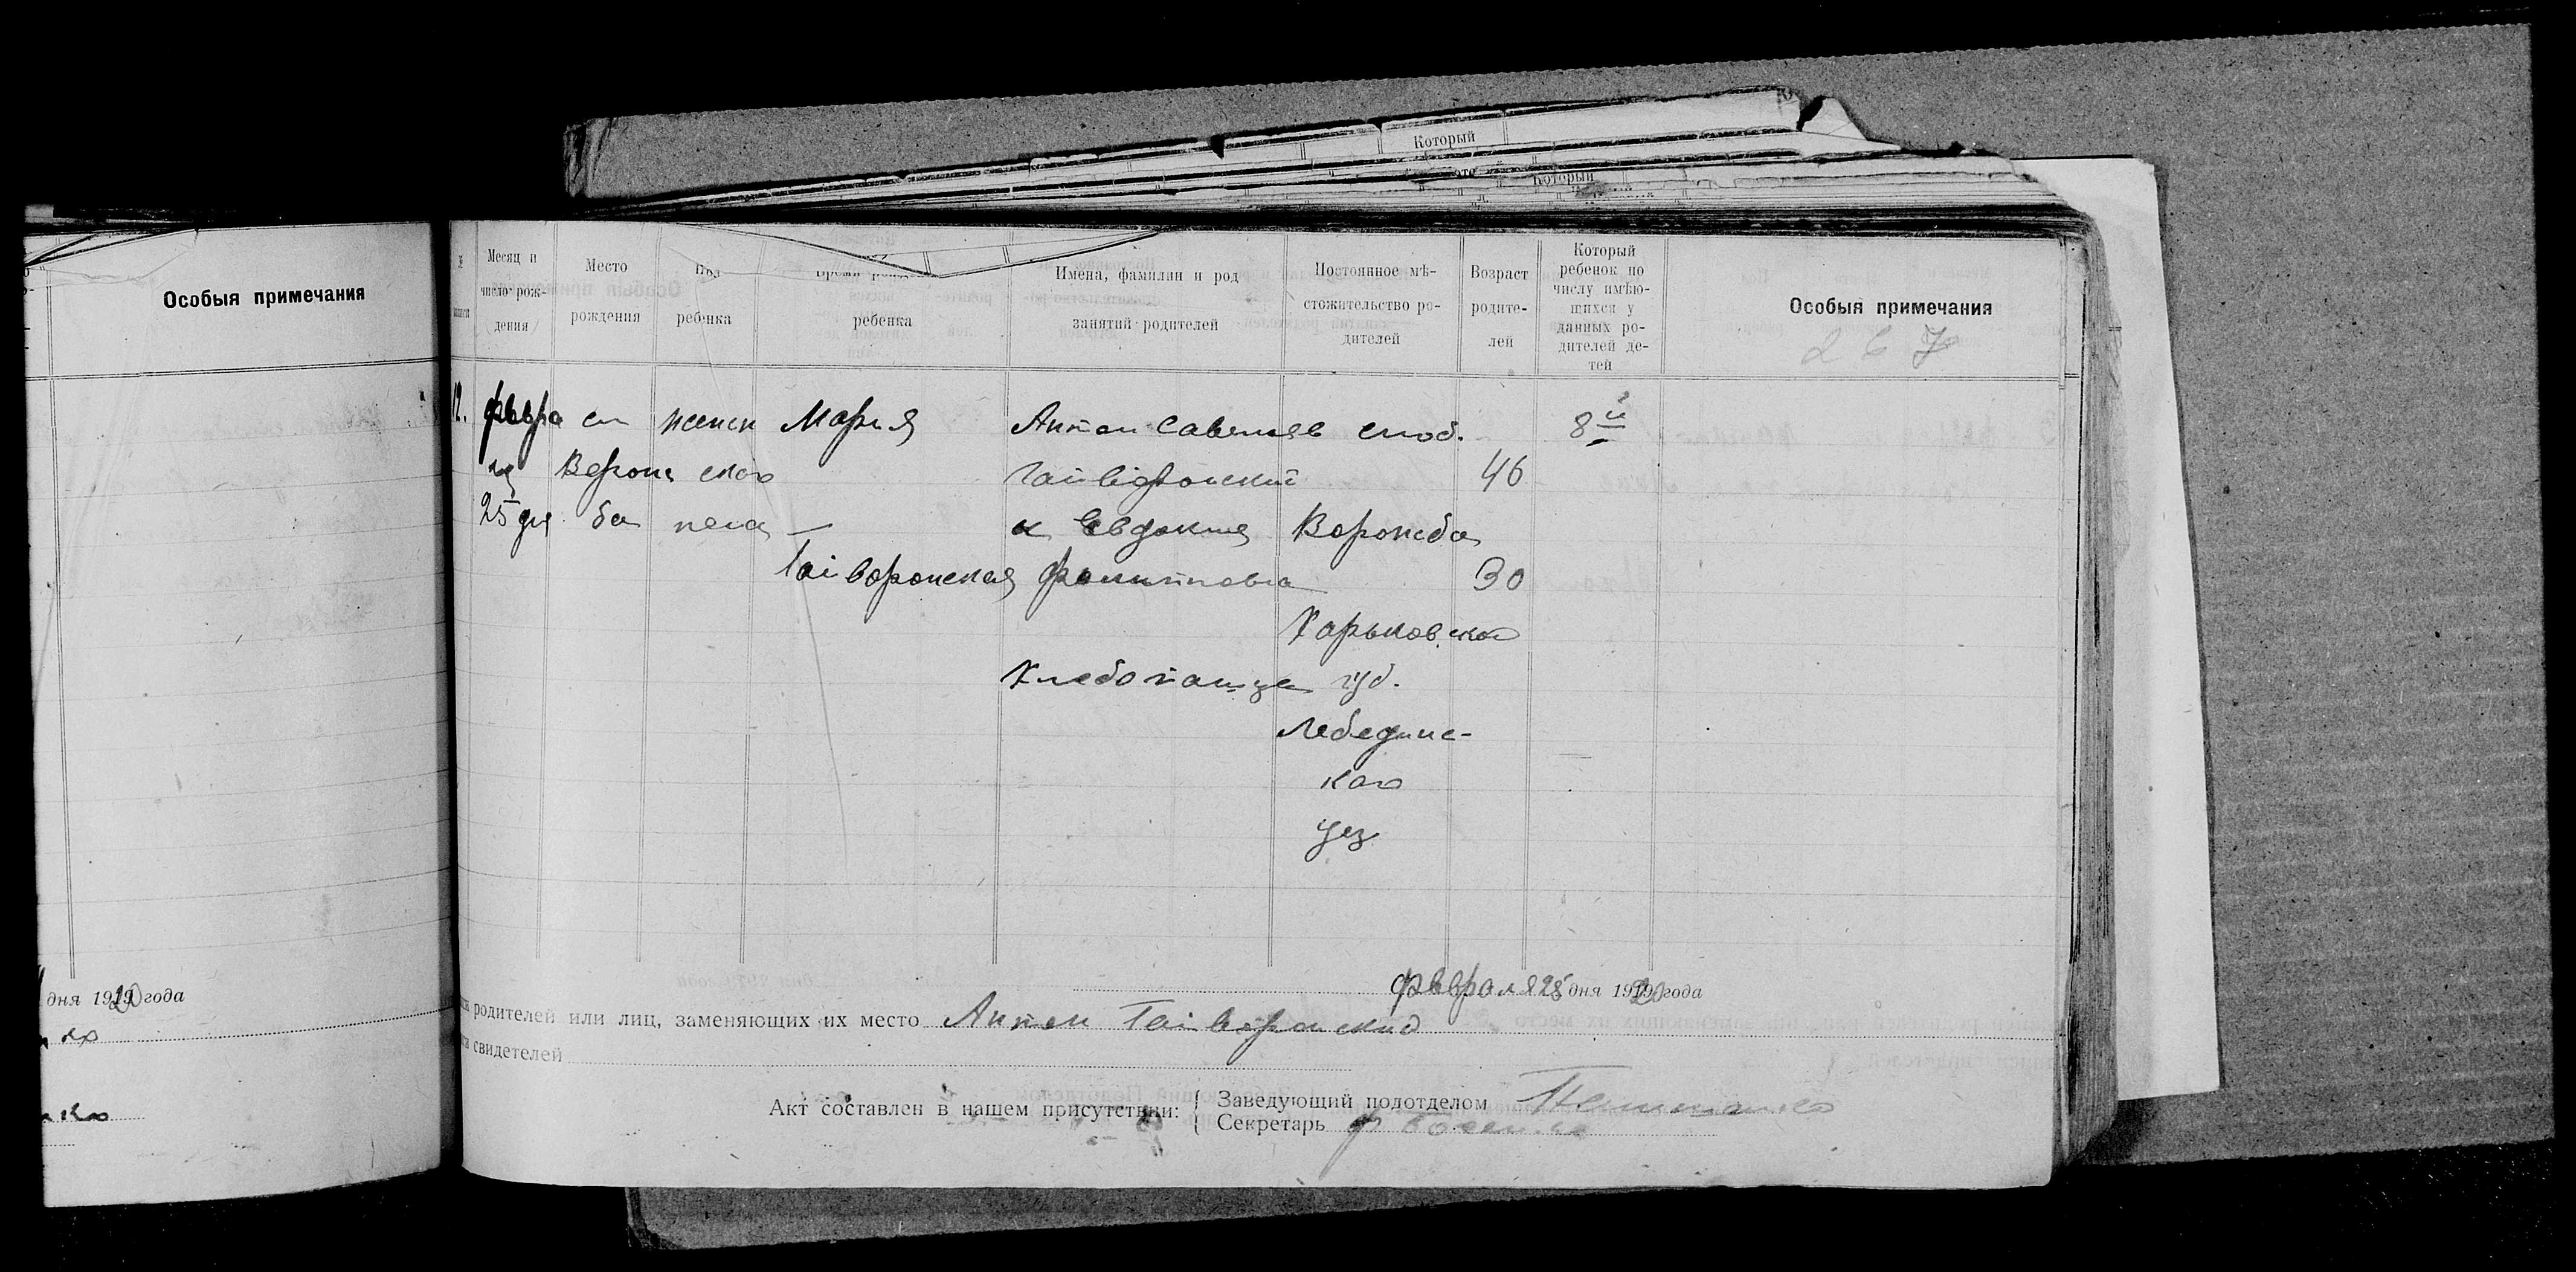 Который
Который
Особыя примечания
Месяц и число рождения
Место рождения
Пол ребенка
ребенка
Имена, фамилии и род занятий родителей
Постоянное мѣстожительство родителей
Возраст родителей
Который ребенок по числу имѣющихся у данных родителей детей
Особыя примечания
267
12. февра сл женск Мария Антон Савельев слоб. 8й
ля Ворож ског Гайворонский 46
25 дня ба пола — и Евдокия Ворожба
Гайворонская 30
Харьковской
Хлебопашцы губ.
Лебединс-
каго
уез
дня 1920 года
февраля 28 дня 1920 года
родителей или лиц, заменяющих их место Антон Гайворонский
свидетелей
Акт составлен в нашем присутствии:
Заведующий подотделом
Секретарь